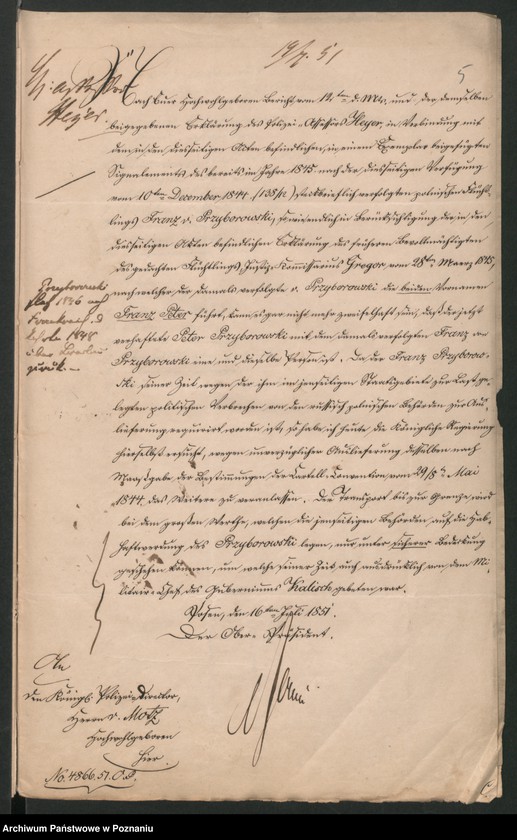 19/7. 51
5
Nach Euer Hochwohlgeboren Bericht vom 12ten d. Mts. und der demselben
beigegebenen Erklärung des Polizei-Assessors Heyer, in Verbindung mit
dem in den diesseitigen Akten befindlichen, in einem Exemplar beigefügten
Signalements des bereits im Jahre 1845 nach der diesseitigen Verfügung
vom 10ten December 1844 steckbrieflich verfolgten polnischen Flücht-
lings Franz v. Przyborowski, so wie endlich in Berücksichtigung der in den
diesseitigen Akten befindlichen Erklärung des früheren Bevollmächtigten
des gedachten Flüchtlings Justiz-Kommissarius Gregor vom 28ten Maerz 1845,
nach welcher der damals verfolgte v. Przyborowski die beiden Vornamen
Franz Peter führt, kann es gar nicht mehr zweifelhaft sein, daß der jetzt
verhaftete Peter Przyborowski mit dem damals verfolgten Franz von
Przyborowski eine und dieselbe Person ist. Da der Franz Przyborow-
ski seiner Zeit wegen der ihm im jenseitigen Staatsgebiete zur Last ge-
legten politischen Verbrechen von den russisch polnischen Behörden zur Aus-
lieferung requirirt worden ist, so habe ich heute die Königliche Regierung
hierselbst ersucht, wegen unverzüglicher Auslieferung desselben nach
Maasgabe der Bestimmungen der Cartell-Convention vom 20/8ten Mai
1844 das Weitere zu veranlassen. Der Transport bis zur Grenze wird
bei dem großen Werthe, welchen die jenseitigen Behörden auf die Hab-
haftwerdung des Przyborowski legen, nur unter sicherer Bedeckung
geschehen können, um welche seiner Zeit auch ausdrücklich von dem Mi-
litair-Chef des Guberniums Kalisch gebeten war.
Posen, den 16ten Juli 1851.
Der Ober-Präsident.
An
den Königl. Polizei-Director,
Herrn v. Motz
Hochwohlgeboren
hier.
No. 4866. 51. O.P.
Heyer
Przyborowski
1836 nach
Frankreich
1848
über
zurück
Archiwum Państwowe w Poznaniu